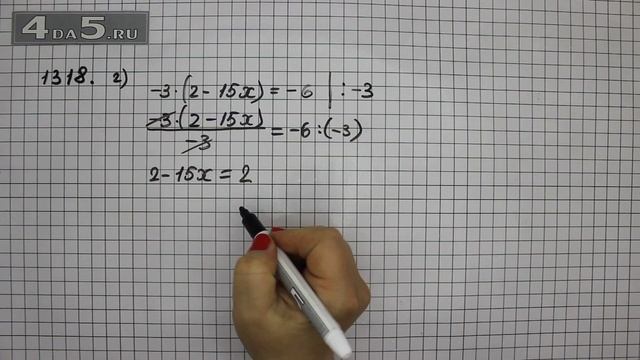 4DA5.RU
1318. 2) -3·(2-15x)=-6 | :-3
-3·(2-15x)/-3 = -6:(-3)
2-15x=2